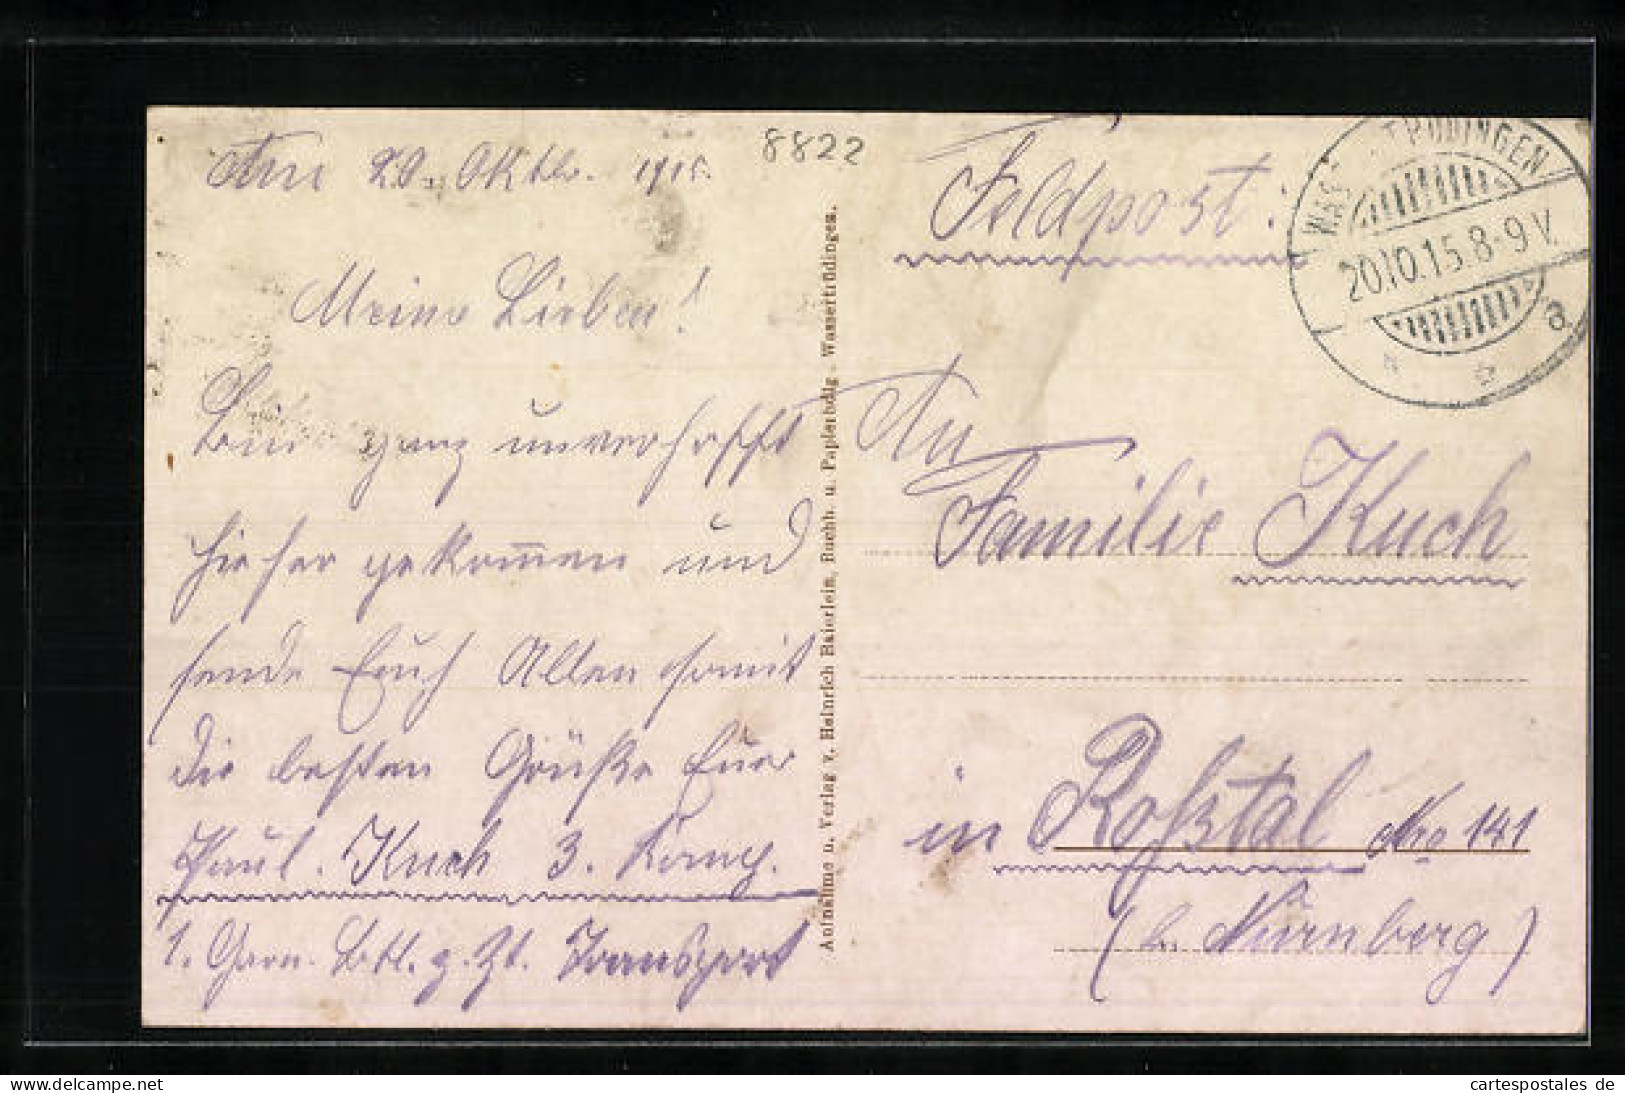 8822
Am 20. Oktbr. 1915.
Meine Lieben!
Bin ganz unverhofft
hieher gekom̅en und
sende Euch Allen somit
die besten Grüße Euer
Paul. Kuch 3. Komp.
1. Garn. Batl. z. Zt. Transport
Aufnahme u. Verlag v. Heinrich Baierlein, Buchh. u. Papierhdlg. Wassertrüdingen.
Feldpost.
WASSERTRÜDINGEN
20.10.15.8-9V.
a
An
Familie Kuch
in Roßtal Nro 141
(b. Nürnberg)
cartespostales de